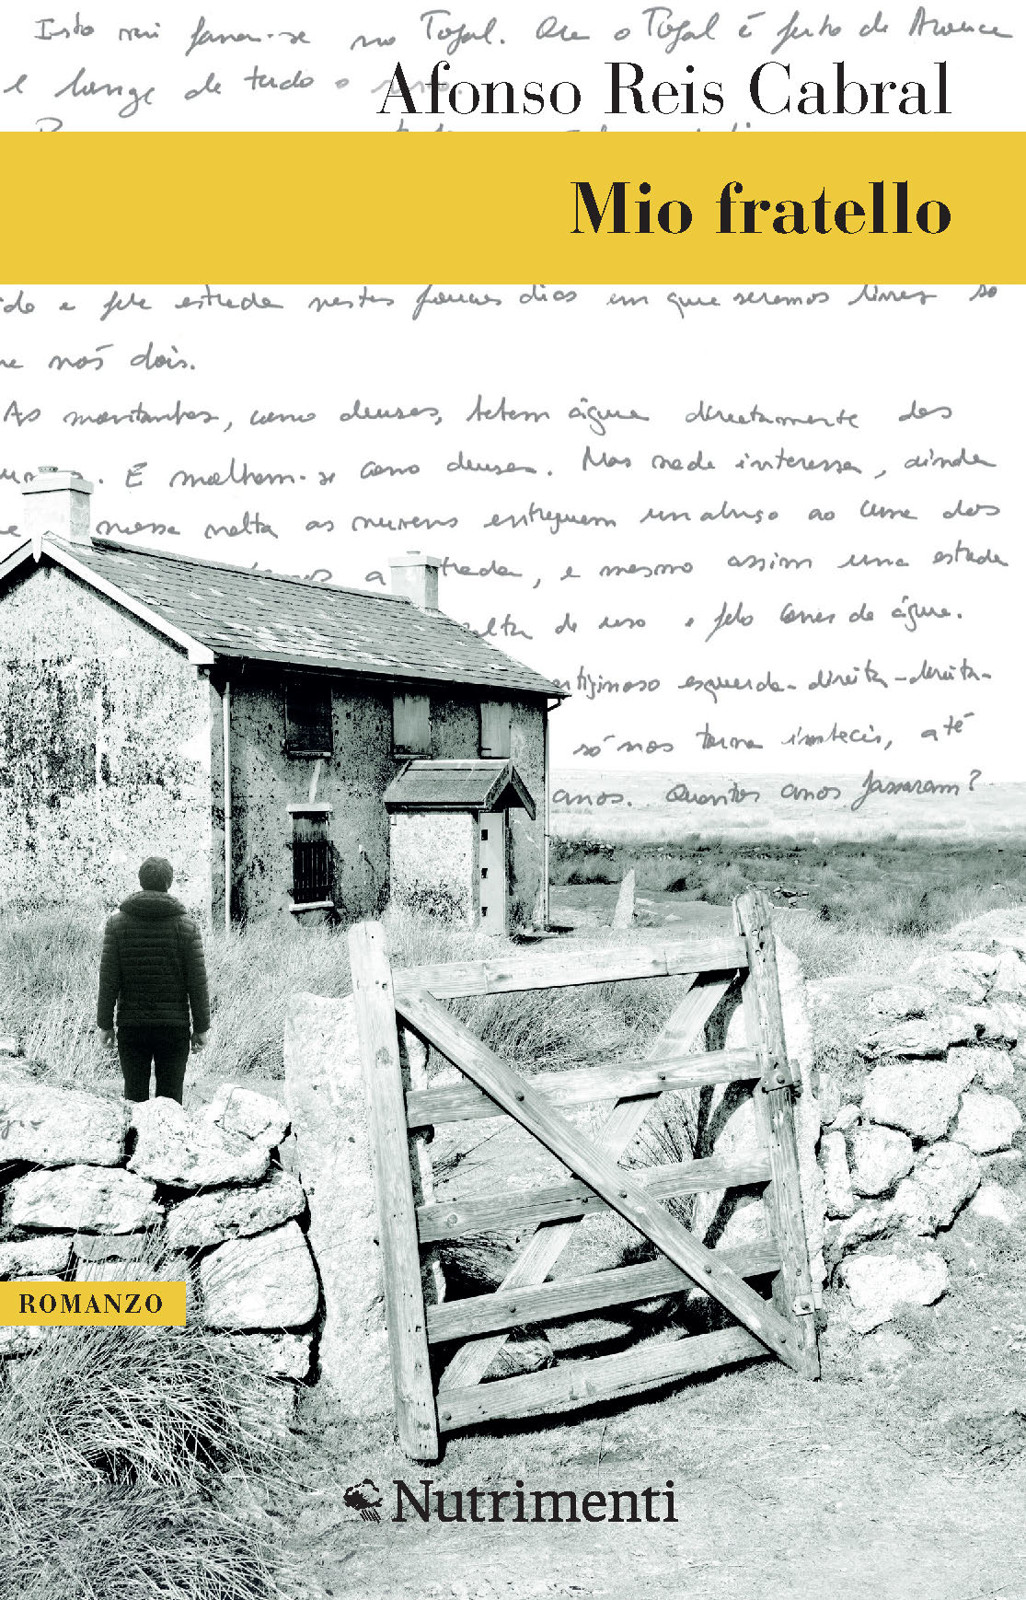 Isto vai passar-se no Tojal. Ora o Tojal é perto de Arouca
e longe de tudo o resto.
Afonso Reis Cabral
Mio fratello
do e pela estrada nestes poucos dias em que seremos livres so
nós dois.
As montanhas, como deuses, bebem água directamente das
. E molham-se como deuses. Mas nada interessa, ainda
nessa volta as nuvens entreguem um abraço ao cume dos
a trada, e mesmo assim uma estrada
alta de uso e pelo correr da água.
esquerda-direita-direita-
só nos torna imbecis, até
anos. Quantos anos passaram?
ROMANZO
Nutrimenti